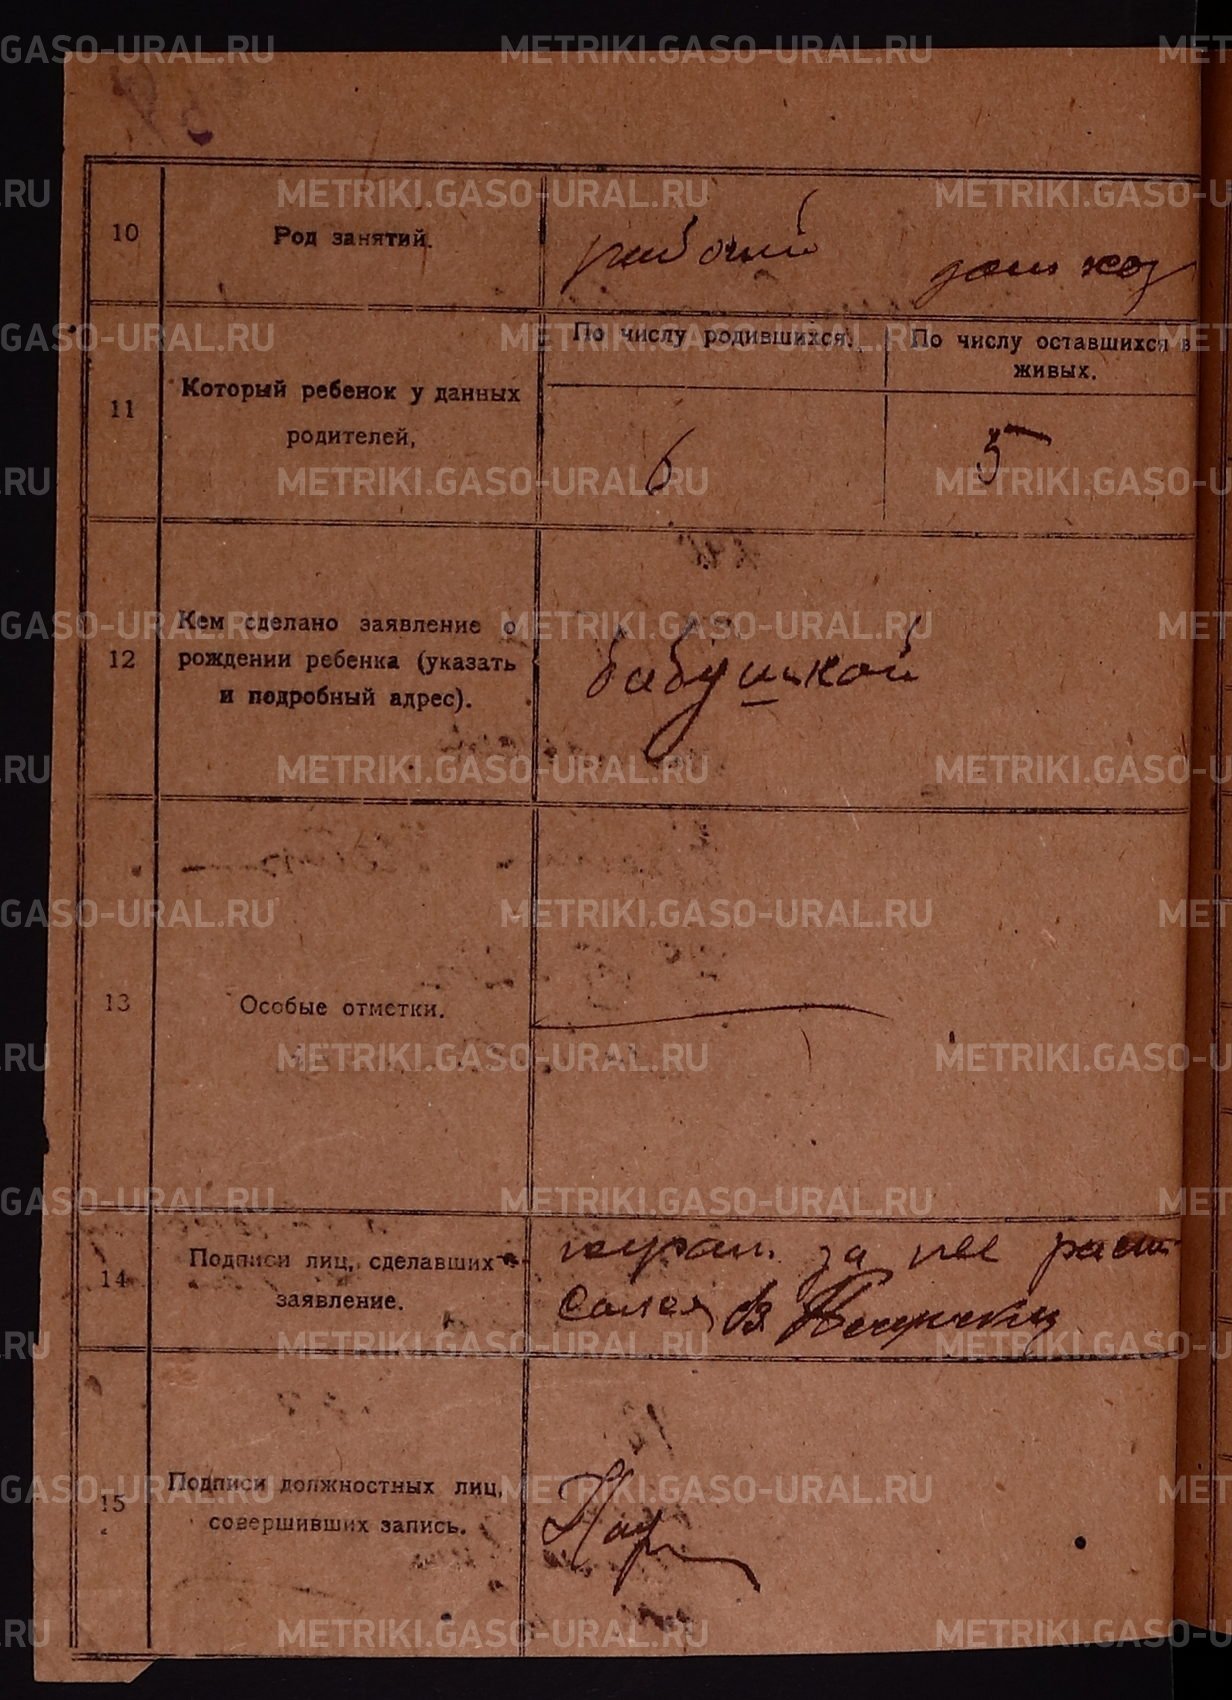 METRIKI.GASO-URAL.RU
10
Род занятий.
рабочий
дом хоз
11
Который ребенок у данных
родителей,
По числу родившихся.
По числу оставшихся в
живых.
6
5
12
Кем сделано заявление о
рождении ребенка (указать
и подробный адрес).
бабушкой
13
Особые отметки.
14
Подписи лиц, сделавших
заявление.
за нее распи
сался
15
Подписи должностных лиц,
совершивших запись.